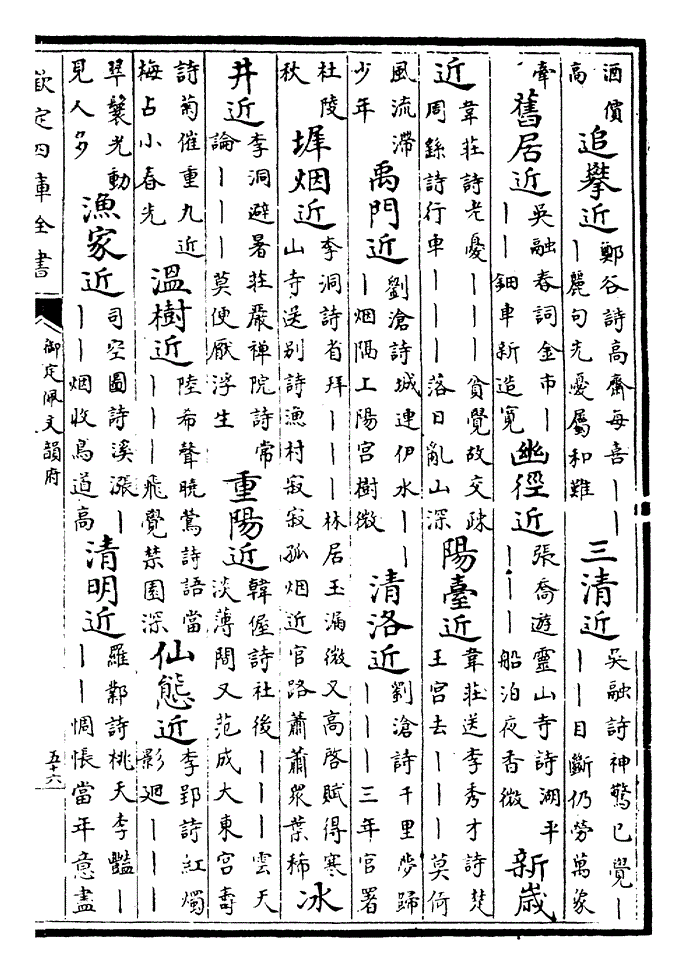 酒價
高
追攀近
鄭谷詩高齋每喜——
—麗句先憂屬和難
三清近
吳融詩神驚已覺—
——目斷仍勞萬象
牽
舊居近
吳融春詞金市—
——鈿車新造寛
幽徑近
張喬遊靈山寺詩湖平
———船泊夜香微
新歲
近
韋莊詩老憂———貧覺故交疎
周繇詩行車————落日亂山深
陽臺近
韋莊送李秀才詩楚
王宮去———莫倚
風流滯
少年
禹門近
劉滄詩城連伊水——
—烟隔上陽宮樹微
清洛近
劉滄詩千里夢歸
———三年官署
杜陵
秋
墀烟近
李洞詩省拜———林居玉漏微又高啓賦得寒
山寺送别詩漁村寂寂孤烟近官路蕭蕭衆葉稀
冰
井近
李洞避暑莊嚴禅院詩常
論———莫便厭浮生
重陽近
韓偓詩社後———雲天
淡薄間又范成大東宮壽
詩菊催重九近
梅占小春光
溫樹近
陸希聲曉鶯詩語當
———飛覺禁園深
仙態近
李郢詩紅燭
影廻———
翠鬟光動
見人多
漁家近
司空圖詩溪漲—
——烟收鳥道高
清明近
羅鄴詩桃夭李豔—
——惆悵當年意盡
欽定四庫全書
御定佩文韻府
五十六